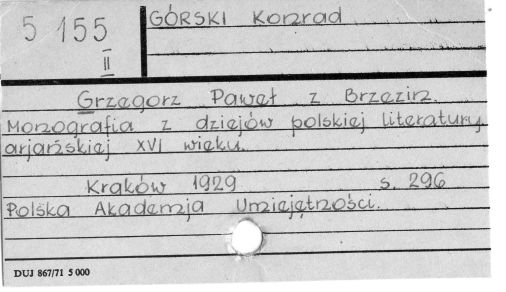 5 155
II
GÓRSKI Konrad
Grzegorz Paweł z Brzezin.
Monografia z dziejów polskiej literatury
arjańskiej XVI wieku.
Kraków 1929 s. 296
Polska Akademja Umiejętności.
DUJ 867/71 5 000